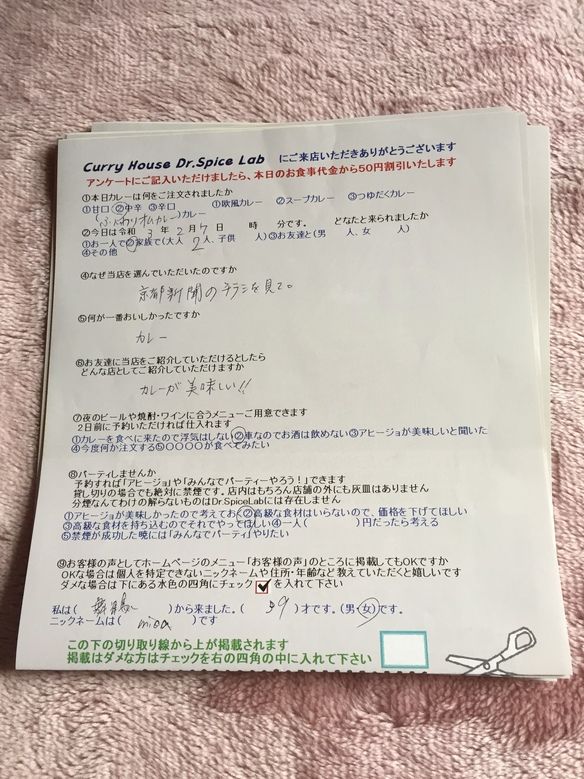 Curry House Dr.Spice Lab にご来店いただきありがとうございます
アンケートにご記入いただけましたら、本日のお食事代金から50円割引いたします
①本日カレーは何をご注文されましたか
①甘口 ②中辛 ③辛口 ①欧風カレー ②スープカレー ③つゆだくカレー
(ふんわりオムカレー)カレー
②今日は令和 3 年 2 月 7 日 時 分です。 どなたと来られましたか
①お一人で②家族で(大人 2 人、子供 人)③お友達と(男 人、女 人)
④その他
④なぜ当店を選んでいただいたのですか
京都新聞のチラシを見て。
⑤何が一番おいしかったですか
カレー
⑥お友達に当店をご紹介していただけるとしたら
どんな店としてご紹介していただけますか
カレーが美味しい!!
⑦夜のビールや焼酎・ワインに合うメニューご用意できます
2日前に予約いただければ仕入れます
①カレーを食べに来たので浮気はしない②車なのでお酒は飲めない③アヒージョが美味しいと聞いた
④今度何か注文する⑤〇〇〇〇が食べてみたい
⑧パーティしませんか
予約すれば「アヒージョ」や「みんなでパーティーやろう!」できます
貸し切りの場合でも絶対に禁煙です。店内はもちろん店舗の外にも灰皿はありません
分煙なんてわけの解らないものはDr.SpiceLabには存在しません
①アヒージョが美味しかったので考えておく②高級な食材はいらないので、価格を下げてほしい
③高級な食材を持ち込むのでそれでやってほしい④一人( )円だったら考える
⑤禁煙が成功した暁には「みんなでパーティ」やりたい
⑨お客様の声としてホームページのメニュー「お客様の声」のところに掲載してもOKですか
OKな場合は個人を特定できないニックネームや住所・年齢など教えていただくと嬉しいです
ダメな場合は下にある水色の四角にチェック を入れて下さい
私は( )から来ました。( 39 )才です。(男・女)です。
ニックネームは( mioa )です
この下の切り取り線から上が掲載されます
掲載はダメな方はチェックを右の四角の中に入れて下さい